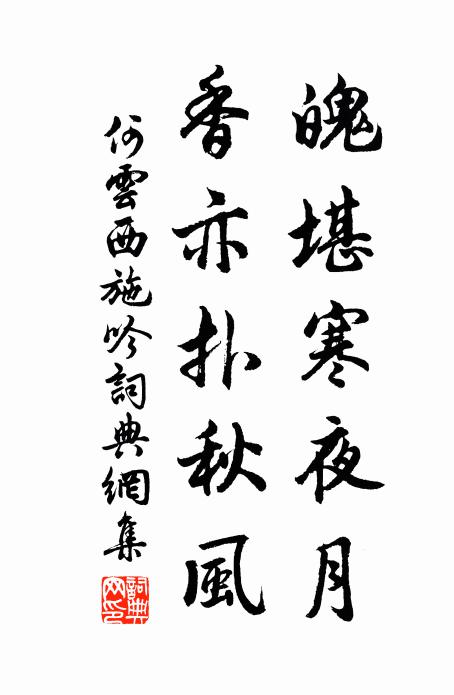 魄堪寒夜月
香亦扑秋風
何雲西施吟詞典網集
詞典網印